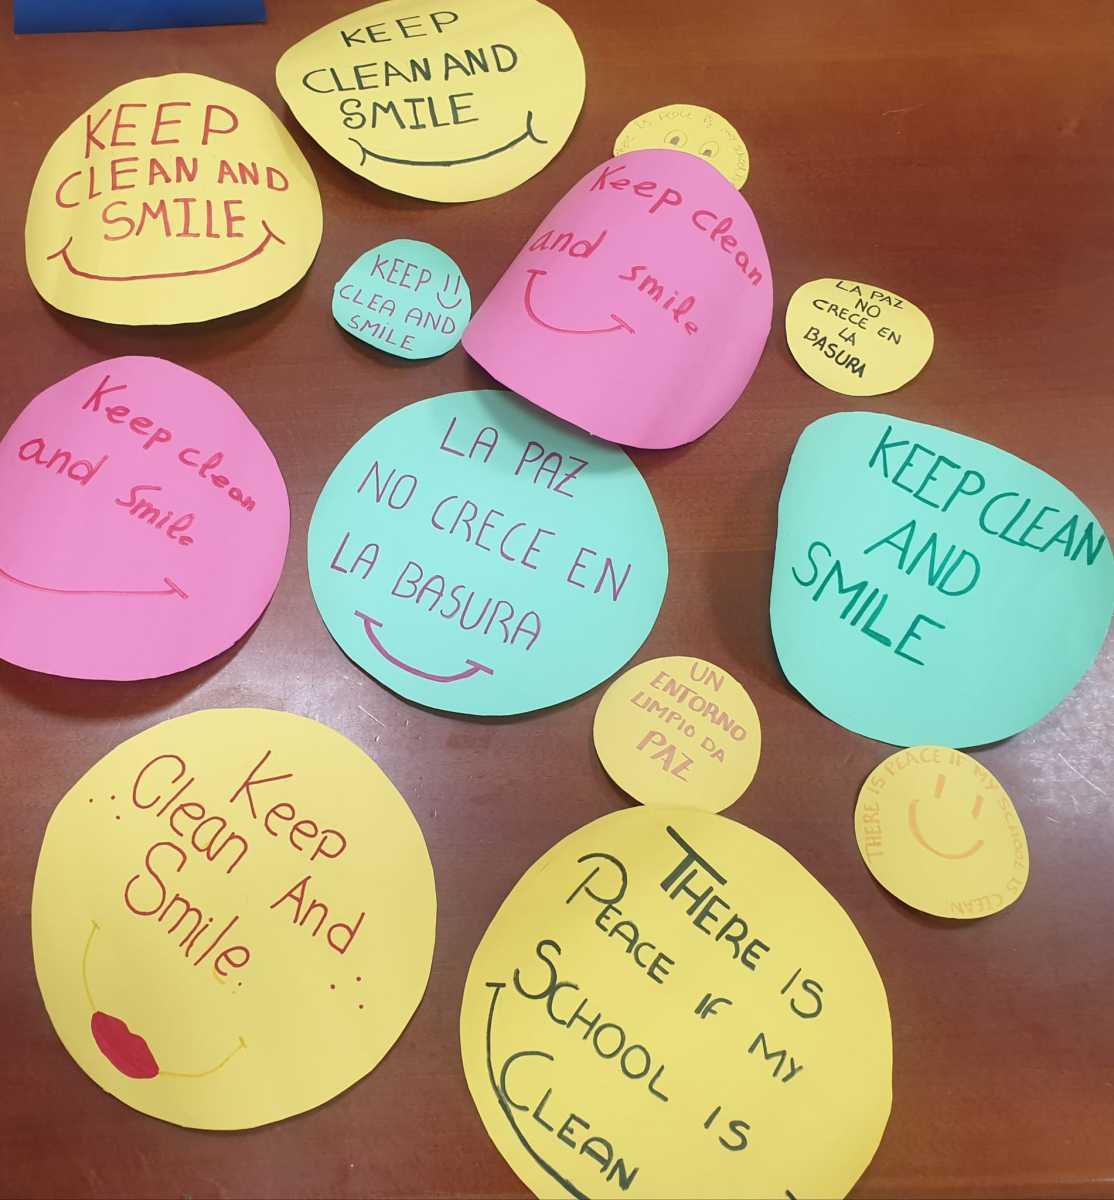 KEEP
CLEAN AND
SMILE
KEEP
CLEAN AND
SMILE
THERE IS PEACE IF MY SCHOOL
Keep clean
and smile
KEEP
CLEA AND
SMILE
LA PAZ
NO
CRECE EN
LA
BASURA
Keep clean
and smile
LA PAZ
NO CRECE EN
LA BASURA
KEEP CLEAN
AND
SMILE
UN
ENTORNO
LIMPIO DA
PAZ
THERE IS PEACE IF MY SCHOOL IS CLEAN
Keep
Clean And
Smile
THERE IS
PEACE IF MY
SCHOOL IS
CLEAN